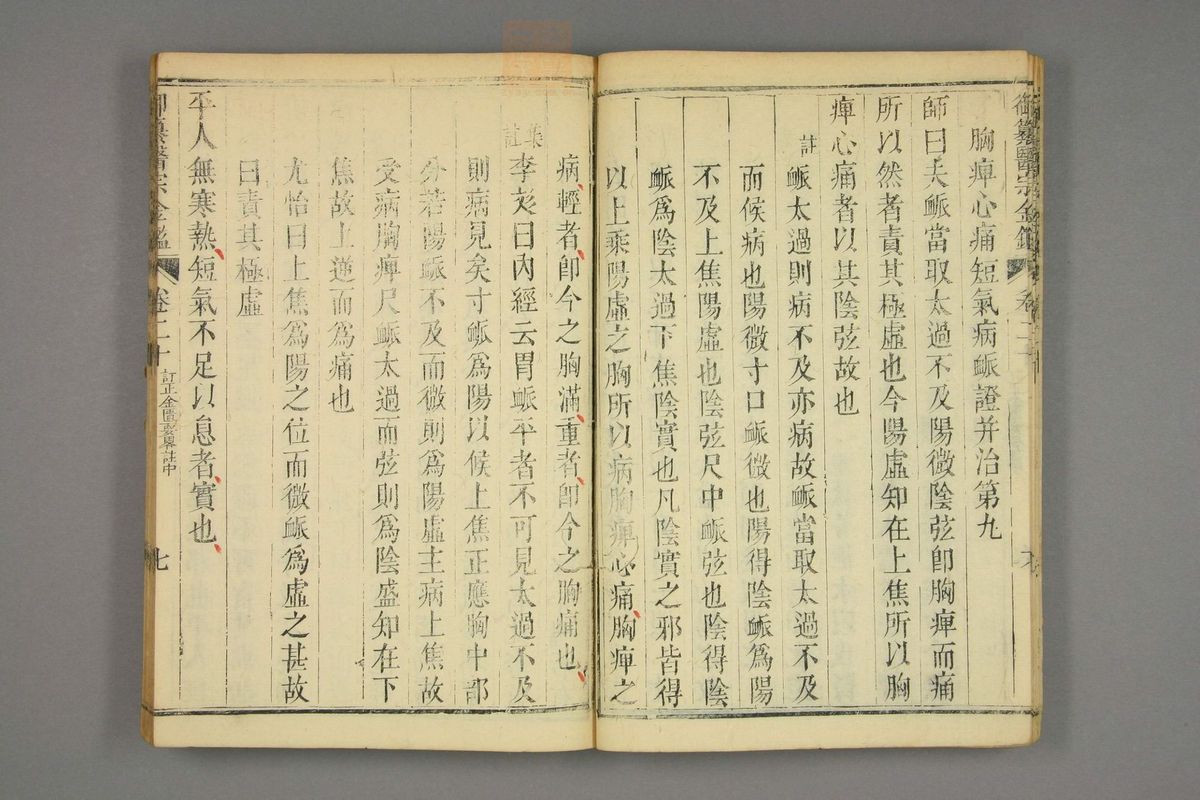 御纂醫宗金鑑 卷二十
胸痺心痛短氣病脈證并治第九
師曰夫脈當取太過不及陽微陰弦即胸痺而痛
所以然者責其極虛也今陽虛知在上焦所以胸
痺心痛者以其陰弦故也
註
脈太過則病不及亦病故脈當取太過不及
而候病也陽微寸口脈微也陽得陰脈為陽
不及上焦陽虛也陰弦尺中脈弦也陰得陰
脈為陰太過下焦陰實也凡陰實之邪皆得
以上乘陽虛之胸所以病胸痺心痛胸痺之
病輕者即今之胸滿重者即今之胸痛也
集註
李彣曰內經云胃脈平者不可見太過不及
則病見矣寸脈為陽以候上焦正應胸中部
分若陽脈不及而微則為陽虛主病上焦故
受病胸痺尺脈太過而弦則為陰盛知在下
焦故上逆而為痛也
尤怡曰上焦為陽之位而微脈為虛之甚故
曰責其極虛
平人無寒熱短氣不足以息者實也
御纂醫宗金鑑 卷二十 訂正金匱要畧註中 七